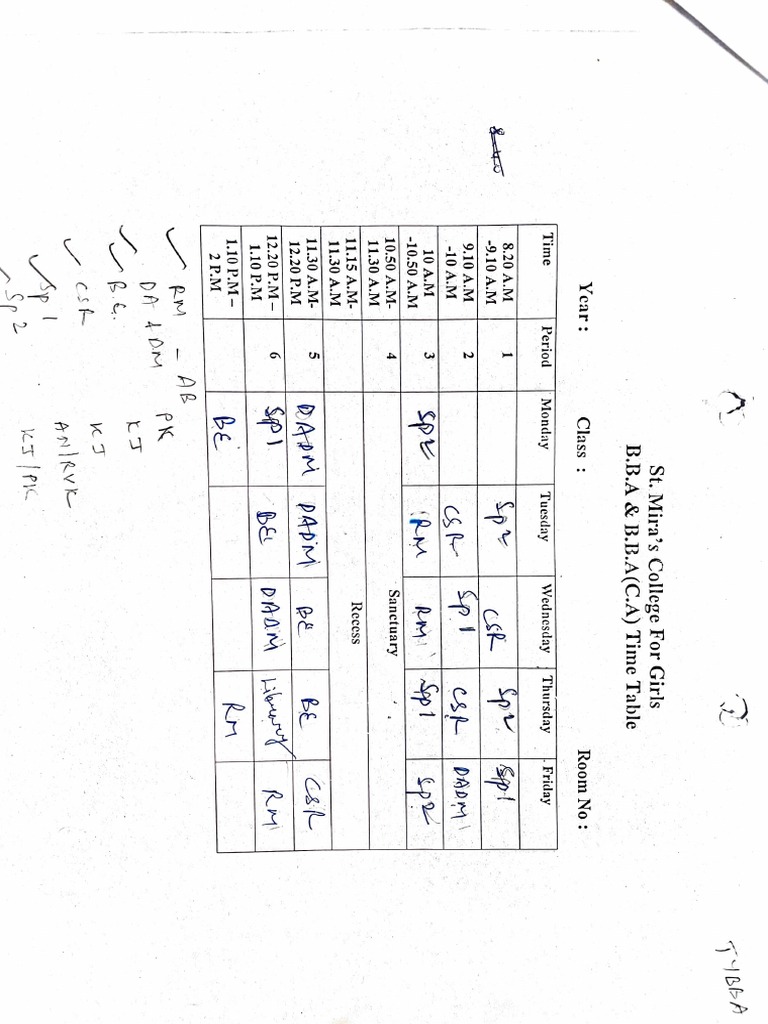 TYBBA
St. Mira's College For Girls
B.B.A & B.B.A(C.A) Time Table
Year : Class : Room No :
Time Period Monday Tuesday Wednesday Thursday Friday
8.20 A.M -9.10 A.M 1 Sp2 CSR Sp2 Sp1
9.10 A.M -10 A.M 2 CSR Sp1 CSR DADM
10 A.M -10.50 A.M 3 Sp2 RM RM Sp1 Sp2
10.50 A.M- 11.30 A.M 4 Sanctuary
11.15 A.M- 11.30 A.M Recess
11.30 A.M- 12.20 P.M 5 DADM DADM BE BE CSR
12.20 P.M – 1.10 P.M 6 Sp1 BE DADM Library RM
1.10 P.M – 2 P.M BE RM
RM - AB
DADM PK
B.E. KJ
CSR KJ
Sp1 AN/RVK
Sp2 KJ/PK